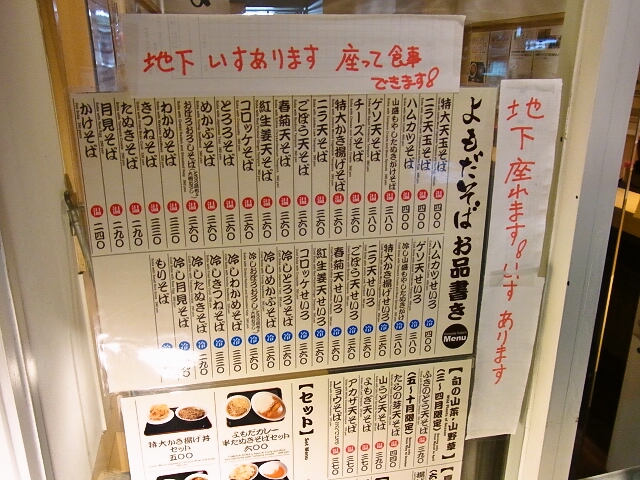 地下 いすあります 座って食事
できます!
地下 座れます! いす あります
よもだそば お品書き
Menu
特大天玉そば 温 四〇〇
ニラ天玉そば 温 四〇〇
ハムカツそば 温 四〇〇
山盛もやしたぬきかけそば 温 三八〇
ゲソ天そば 温 三八〇
チーズそば 温 三八〇
特大かき揚げそば 温 三六〇
ニラ天そば 温 三六〇
ごぼう天そば 温 三六〇
春菊天そば 温 三六〇
紅生姜天そば 温 三六〇
コロッケそば 温 三六〇
とろろそば 温 三六〇
めかぶそば 温 三六〇
おぼろおろしそば
わかめそば 温 三三〇
きつねそば 温 三三〇
たぬきそば 温 二九〇
月見そば 温 二九〇
かけそば 温 二四〇
ハムカツせいろ 冷 四〇〇
ゲソ天せいろ 冷 三八〇
冷し山盛もやしたぬきかけ 冷 三八〇
特大かき揚げせいろ 冷 三六〇
ニラ天せいろ 冷 三六〇
ごぼう天せいろ 冷 三六〇
春菊天せいろ 冷 三六〇
紅生姜天せいろ 冷 三六〇
コロッケせいろ 冷 三六〇
冷しとろろそば 冷 三六〇
冷しめかぶそば 冷 三六〇
冷しおぼろおろしそば
冷しわかめそば 冷 三三〇
冷しきつねそば 冷 三三〇
冷したぬきそば 冷 二九〇
冷し月見そば 冷
もりそば 冷
【旬の山菜・山野草】
(三〜四月限定)
ふきのとう天そば 温 三九〇
たらの芽天そば 温 四四〇
(五〜十月限定)
山うど天そば 温 三九〇
よもぎ天そば 温 三七〇
アカザ天そば 温 三七〇
ヒョウそば 温 三七〇
【セット】
Set Menu
よもだカレー
半たぬきそばセット
六〇〇
特大かき揚げ丼
セット
五〇〇